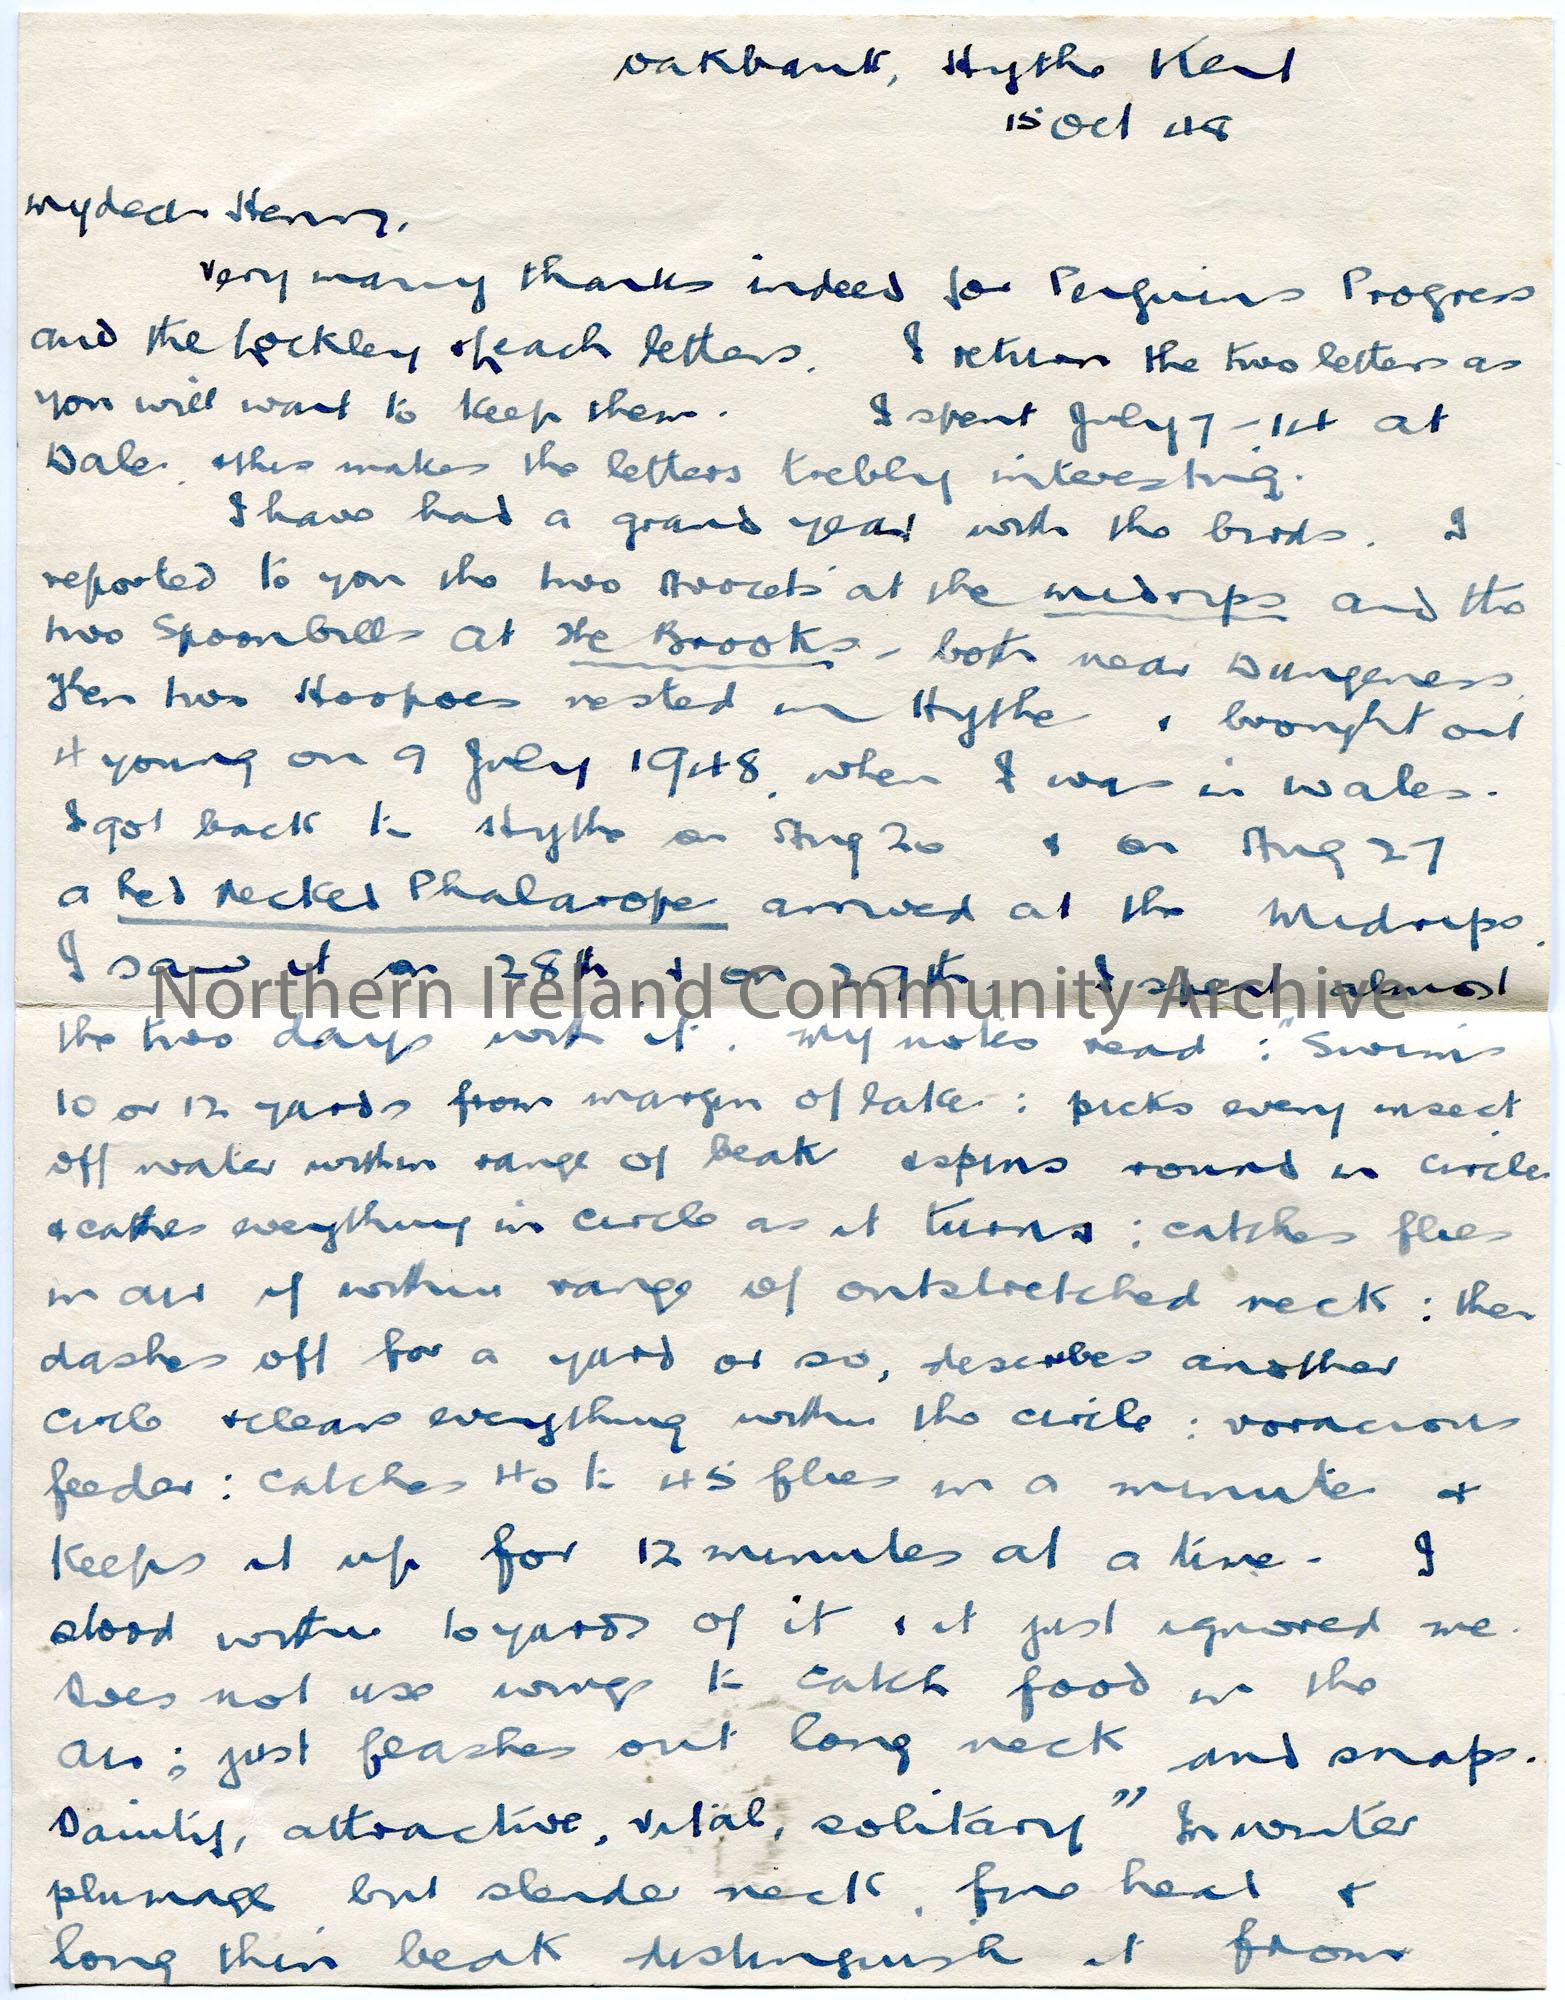 Oakbank, Hythe Kent
15 Oct 48
My dear Henry,
Very many thanks indeed for Penguins Progress
and the Lockley letters. I return the two letters as
you will want to keep them. I spent July 7-14 at
Dale, this makes the letters trebly interesting.
I have had a grand year with the birds. I
reported to you the two Avocets at the Midrips and the
two Spoonbills at the Brooks - both near Dungeness.
Then two Hoopoes nested in Hythe & brought out
4 young on 9 July 1948, when I was in Wales.
I got back to Hythe on Aug 20 & on Aug 27
a Red Necked Phalarope arrived at the Midrips.
I saw it on 28th & on 29th. I spent almost
Northern Ireland Community Archive
the two days with it. My notes read: "Swims
10 or 12 yards from margin of lake: picks every insect
off water within range of beak & spins round in circle
& catches everything in circle as it turns: catches flies
in air if within range of outstretched neck: then
dashes off for a yard or so, describes another
circle & clears everything within the circle: voracious
feeder: catches 40 to 45 flies in a minute &
keeps it up for 12 minutes at a time. I
stood within 10 yards of it & it just ignored me.
Does not use wings to catch food in the
air; just flashes out long neck and snaps.
Dainty, attractive, vital, solitary" In winter
plumage but slender neck, fine head &
long thin beak distinguish it from